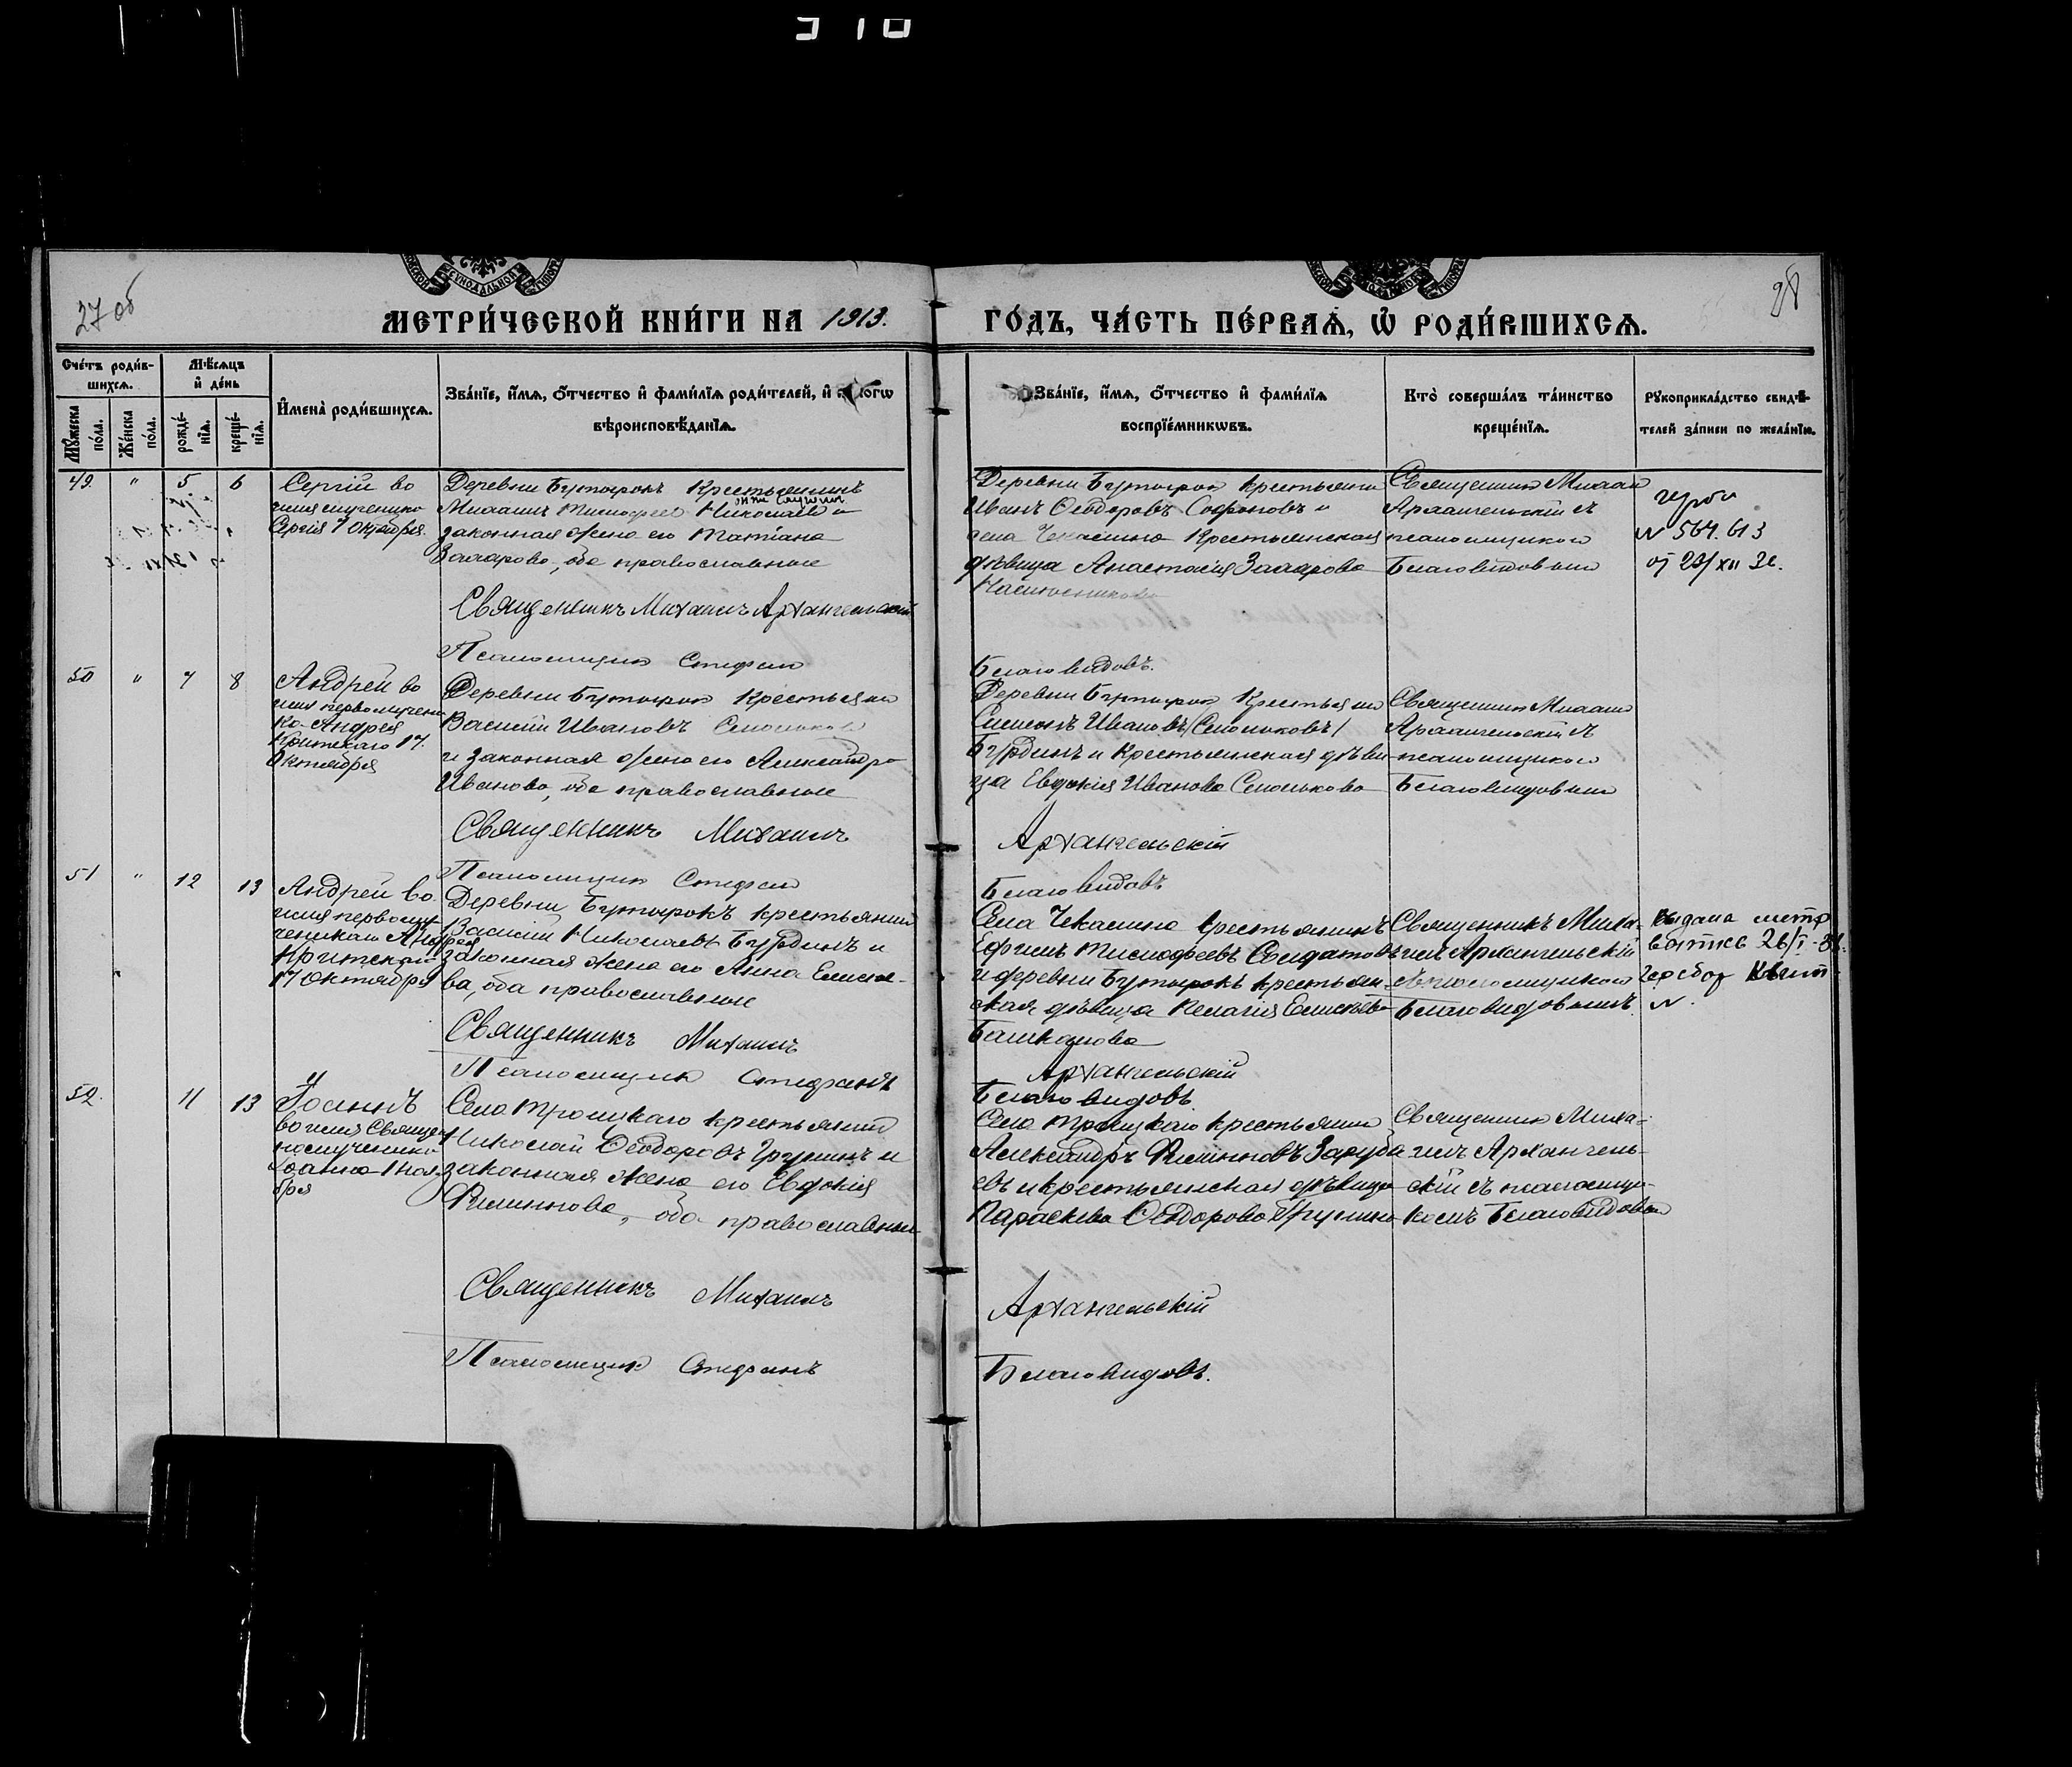 310
27 об
28
МЕТРИЧЕСКОЙ КНИГИ НА 1913.
ГОДЪ, ЧАСТЬ ПЕРВАЯ, Ѡ РОДИВШИХСЯ.
Счетъ родив-
шихся.
Мѣсяцъ
и день
Мужеска
пола.
Женска
пола.
рожде-
нія.
креще-
нія.
Имена родившихся.
Званіе, имя, отчество и фамилія родителей, и
вѣроисповѣданія.
Званіе, имя, отчество и фамилія
воспріемниковъ.
Кто совершалъ таинство
крещенія.
Рукоприкладство свидѣ-
телей записи по желанію.
49. " 5 6
Сергій во
имя мученика
Сергія 7 Октября.
Деревни Бутырокъ Крестьянинъ
Михаилъ Тимофеев Николаев и
законная жена его Татіана
Захарова, оба православные
Священникъ Михаилъ Архангельскій
Псаломщик Стефан
Деревни Бутырок крестьянин
Иванъ Ѳеодоровъ Сафоновъ и
села Чекалина Крестьянская
дѣвица Анастасія Захарова
Благовидовъ.
Священник Михаил
Архангельскій съ
псаломщиком
Благовидовым
№ 564.613
от 29/XII
50 " 7 8
Андрей во
имя первомучени
ка Андрея
Критскаго 17.
Октября
Деревни Бутырок Крестьянин
Василій Ивановъ Сеньков
и законная жена его Александра
Иванова, оба православные
Священникъ Михаилъ
Псаломщик Стефан
Деревни Бутырок Крестьянин
Симеонъ Ивановъ /Сеньковъ/
Бурдинъ и Крестьянская дѣви
ца Евдокія Иванова Сенькова
Архангельскій
Благовидовъ
Священник Михаил
Архангельскій съ
псаломщиком
Благовидовым
51 " 12 13
Андрей во
имя первому-
ченика Андрея
Критскаго
17 Октября
Деревни Бутырокъ крестьянин
Василій Николаевъ Бурдинъ и
законная жена его Анна Елисее-
ва, оба православные
Священникъ Михаилъ
Псаломщик Стефанъ
Села Чекалина крестьянинъ
Ефимъ Тимофеевъ Солдатовъ
и деревни Бутырокъ крестьян-
ская дѣвица Пелагія Елисѣева
Башкатова
Архангельскій
Благовидовъ
Священникъ Миха-
илъ Архангельскій
съ псаломщиком
Благовидовымъ.
Выдана метр
№
52. 11 13
Іоаннъ
во имя Священ
номученика
Іоанна 1 ноя-
бря
Села Троицкаго крестьянин
Николай Ѳеодоровъ Грушинъ и
законная жена его Евдокія
Филиппова, оба православные
Священникъ Михаилъ
Псаломщик Стефанъ
Села Троицкаго крестьянин
Александръ Филипповъ Заруба
евъ и крестьянская дѣвица
Параскева Ѳеодорова Грушина
Архангельскій
Благовидовъ.
Священник Миха-
илъ Архангель-
скій съ псаломщи-
комъ Благовидовым